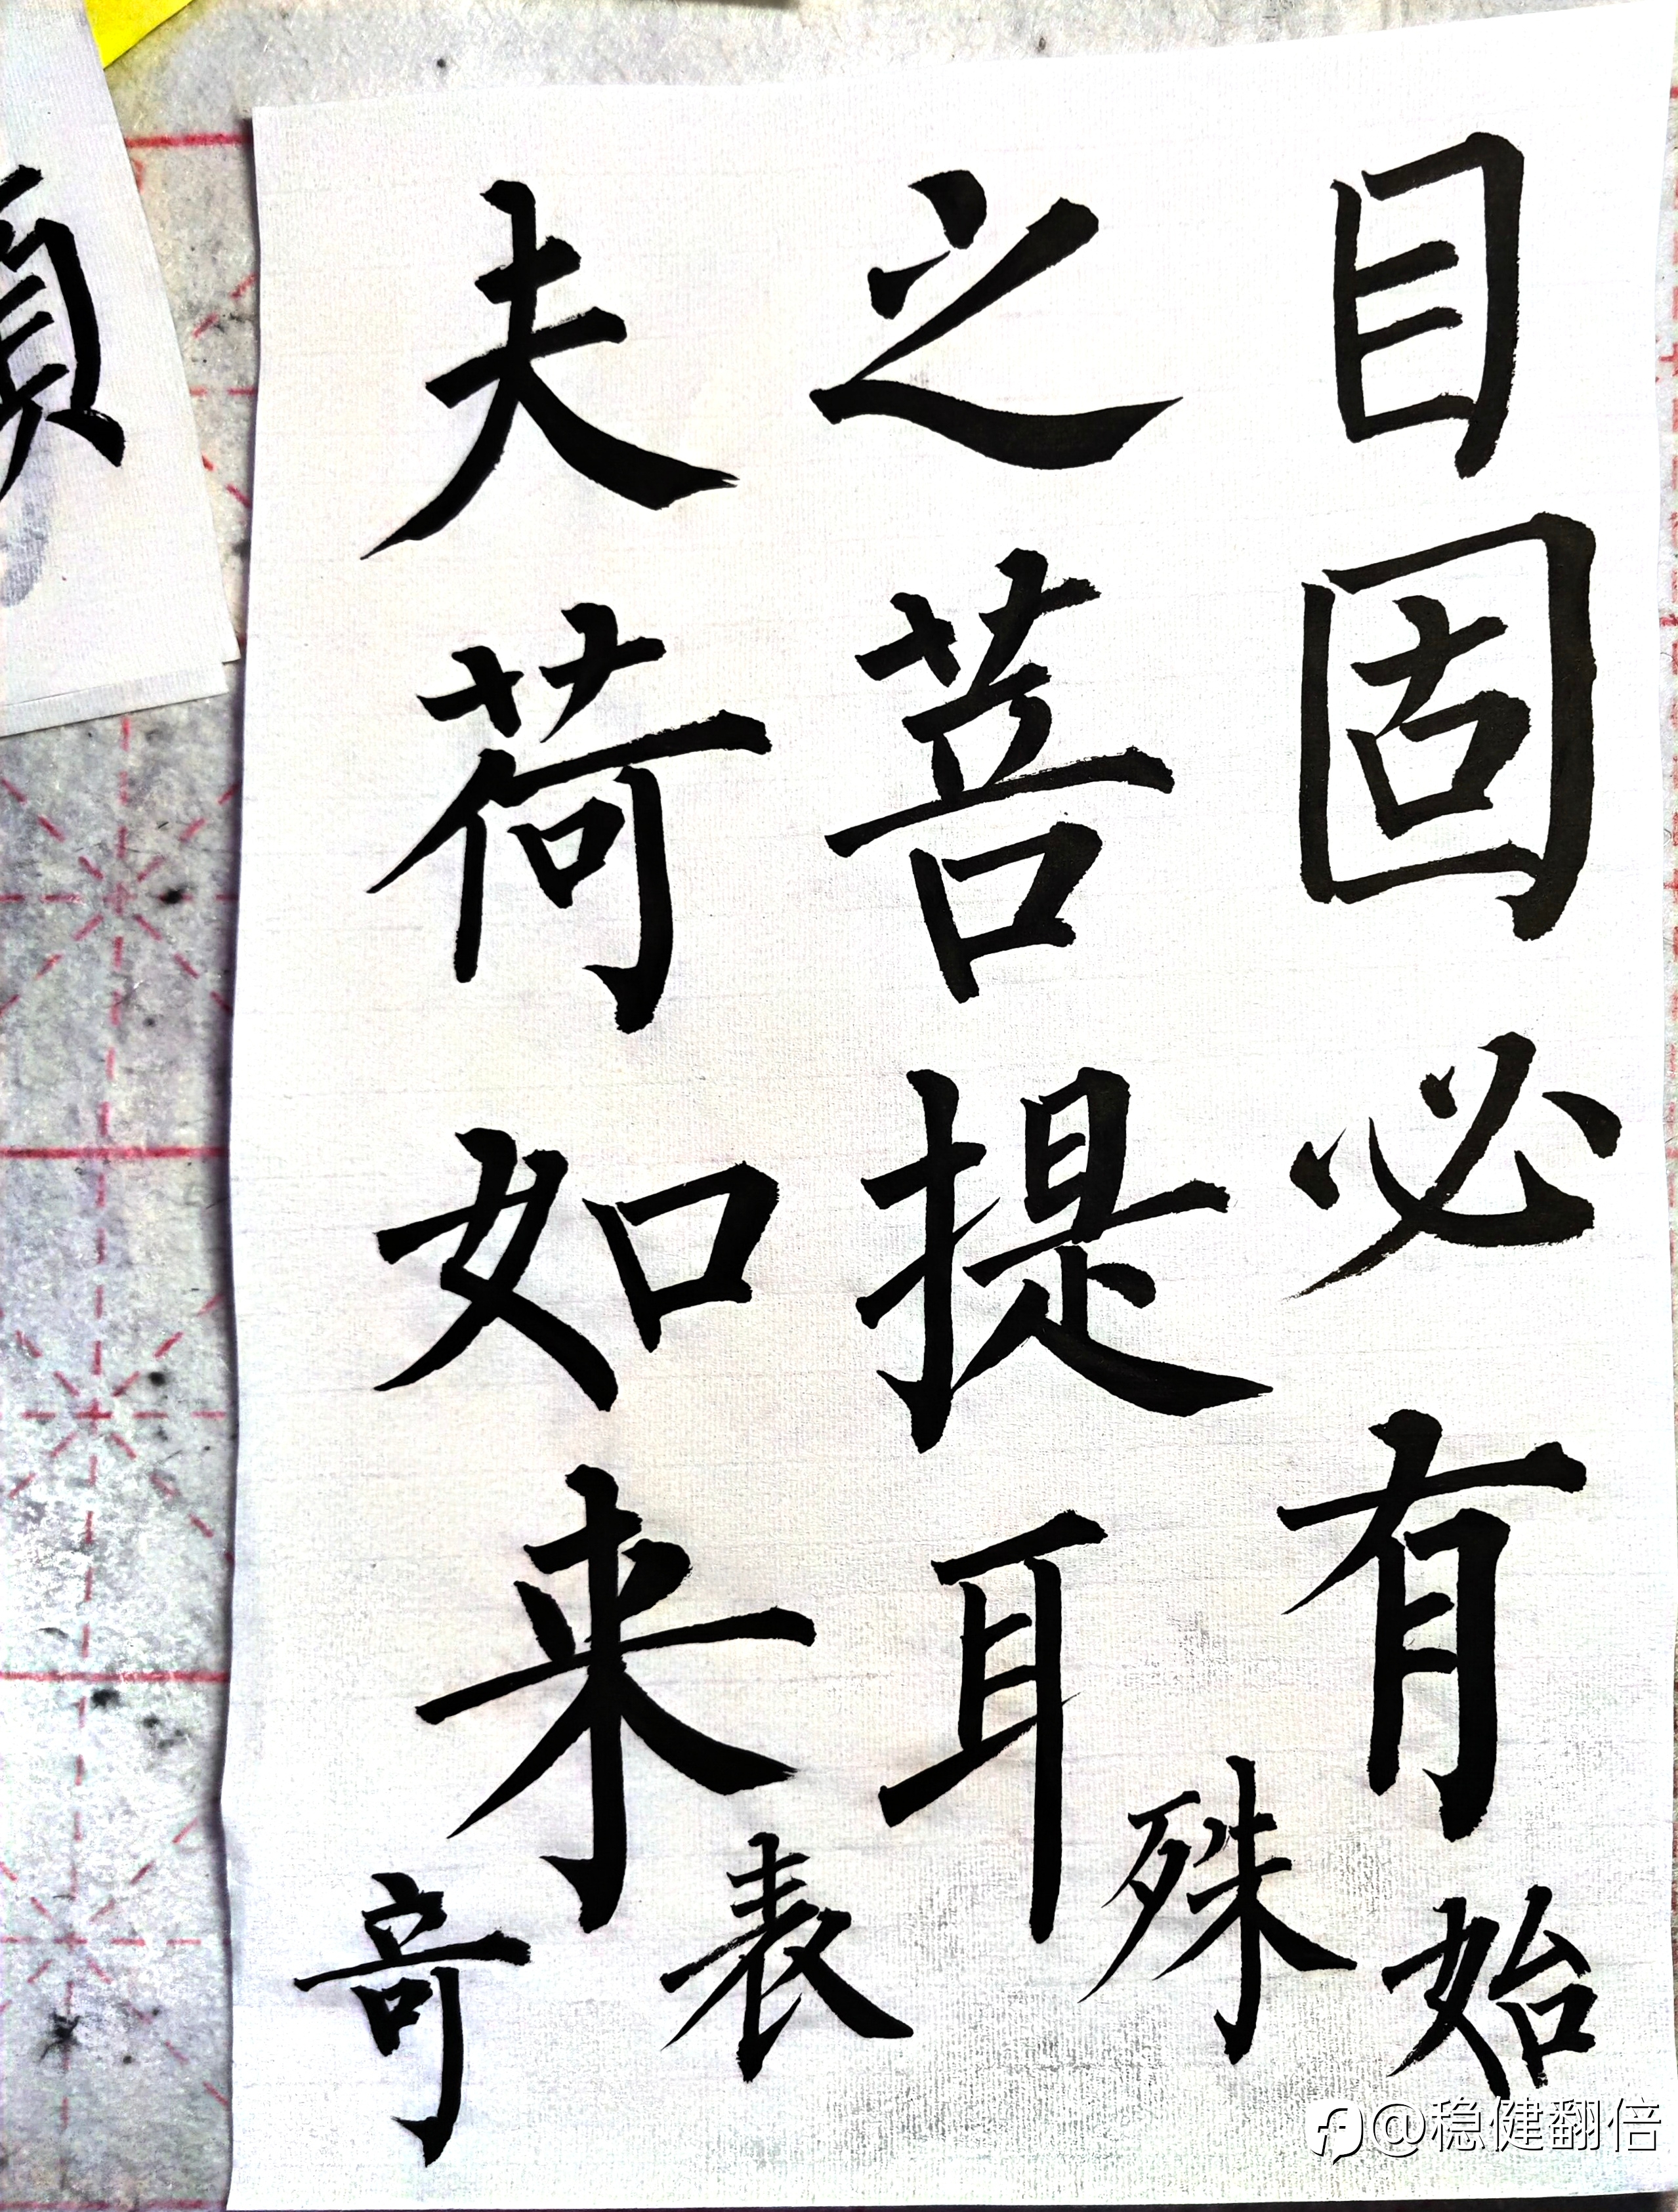 目固必有
之菩提耳
夫荷如来
始殊表竒
@稳健翻倍